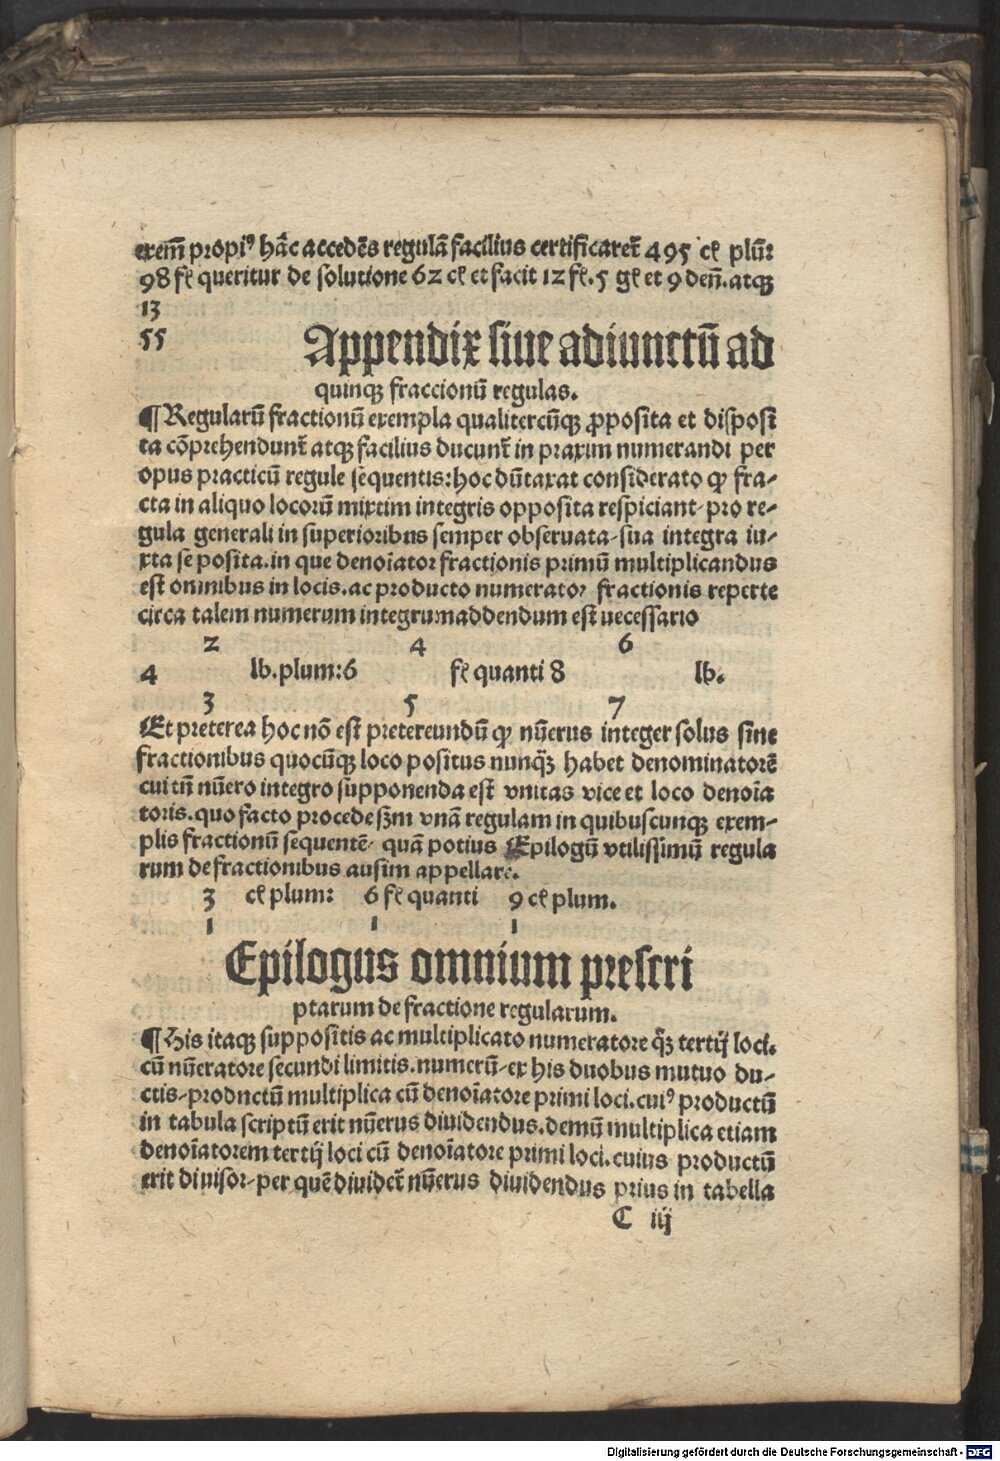 exem̄ propiꝰ hāc accedēs regulā facilius certificaret̄ 495 cł plūꝫ
98 fł queritur de solutione 62 cł et facit 12 fł. 5 gł et 9 deñ. atqꝫ
13
55
Appendix siue adiunctū ad
quinqꝫ fraccionū regulas.
¶ Regularū fractionū exempla qualitercūqꝫ ꝓposita et disposi
ta cōprehendunt̄ atqꝫ facilius ducunt̄ in praxim numerandi per
opus practicū regule sequentis: hoc dūtaxat considerato ꝙ fra-
cta in aliquo locorū mixtim integris opposita respiciant pro re-
gula generali in superioribus semper obseruata sua integra iu-
xta se posita. in que denoīator fractionis primū multiplicandus
est omnibus in locis. ac producto numerator fractionis reperte
circa talem numerum integrum addendum est uecessario
2 4 6
4 lb. plum: 6 fł quanti 8 lb.
3 5 7
Et preterea hoc nō est pretereundū ꝙ nūerus integer solus sine
fractionibus quocūqꝫ loco positus nunq̄ꝫ habet denominatorē
cui tn̄ nūero integro supponenda est vnitas vice et loco denoīa
toris. quo facto procede sꝫm vnā regulam in quibuscunqꝫ exem-
plis fractionū sequentē quā potius Epilogū vtilissimū regula
rum de fractionibus ausim appellare.
3 cł plum: 6 fł quanti 9 cł plum.
1 1 1
Epilogus omnium prescri
ptarum de fractione regularum.
¶ His itaqꝫ suppositis ac multiplicato numeratore q̄ꝫ tertij loci.
cū nūeratore secundi limitis. numerū ex his duobus mutuo du-
ctis productū multiplica cū denoīatore primi loci. cuiꝰ productū
in tabula scriptū erit nūerus diuidendus. demū multiplica etiam
denoīatorem tertij loci cū denoīatore primi loci. cuius productū
erit diuisor per quē diuidet̄ nūerus diuidendus prius in tabella
C iij
Digitalisierung gefördert durch die Deutsche Forschungsgemeinschaft - DFG